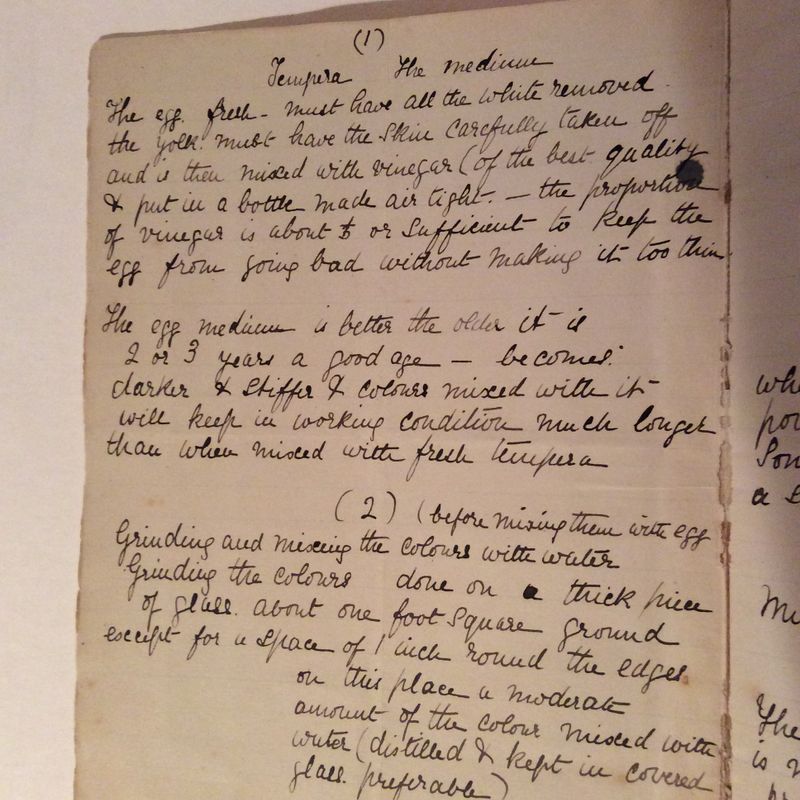 (1)
Tempera The medium
The egg. fresh - must have all the white removed
the yolk. must have the skin carefully taken off
and is then mixed with vinegar (of the best quality
& put in a bottle made air tight. — the proportion
of vinegar is about or sufficient to keep the
egg from going bad without making it too thin.
The egg medium is better the older it is
2 or 3 years a good age — becomes
darker & stiffer & colours mixed with it
will keep in working condition much longer
than when mixed with fresh tempera
(2) (before mixing them with egg
Grinding and mixing the colours with water
Grinding the colours done on a thick piece
of glass. about one foot square ground
except for a space of 1 inch round the edges.
on this place a moderate
amount of the colour mixed with
water (distilled & kept in covered
glass. preferable)
whe
a s
The
is